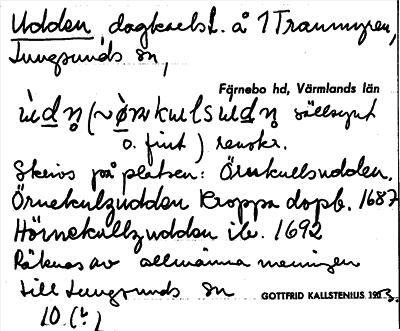 Udden, dagkarlst. å 1 Tranmyren,
Jungsunds sn,
Färnebo hd, Värmlands län
ùdn̥ (~ø̀rnkulsudn̥ sällsynt
o. fint) renskr.
Skrivs på platsen: Örnkullsudden.
Örnekulzudden Kroppa dopb. 1687
Hörnekullzudden ib. 1692
Räknas av allmänna meningen
till Lungsunds sn
GOTTFRID KALLSTENIUS 19
10.(?)